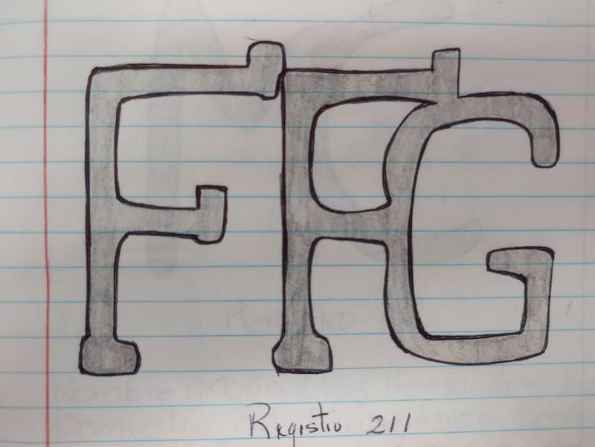 FFG
Registro 211